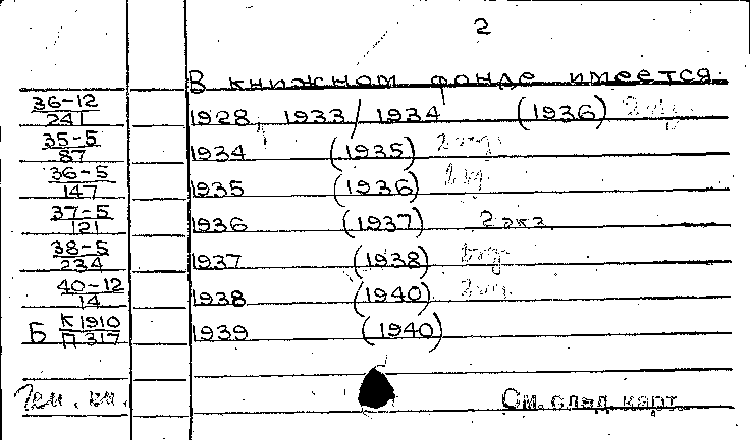 2
В книжном фонде имеется:
36-12/241 1928, 1933/1934 (1936) 2 экз.
35-5/87 1934 (1935) 2 экз.
36-5/147 1935 (1936) 2 экз.
37-5/121 1936 (1937) 2 экз.
38-5/234 1937 (1938) 2 экз.
40-12/14 1938 (1940) 2 экз.
Б К 1910/П 317 1939 (1940)
См. след. карт.